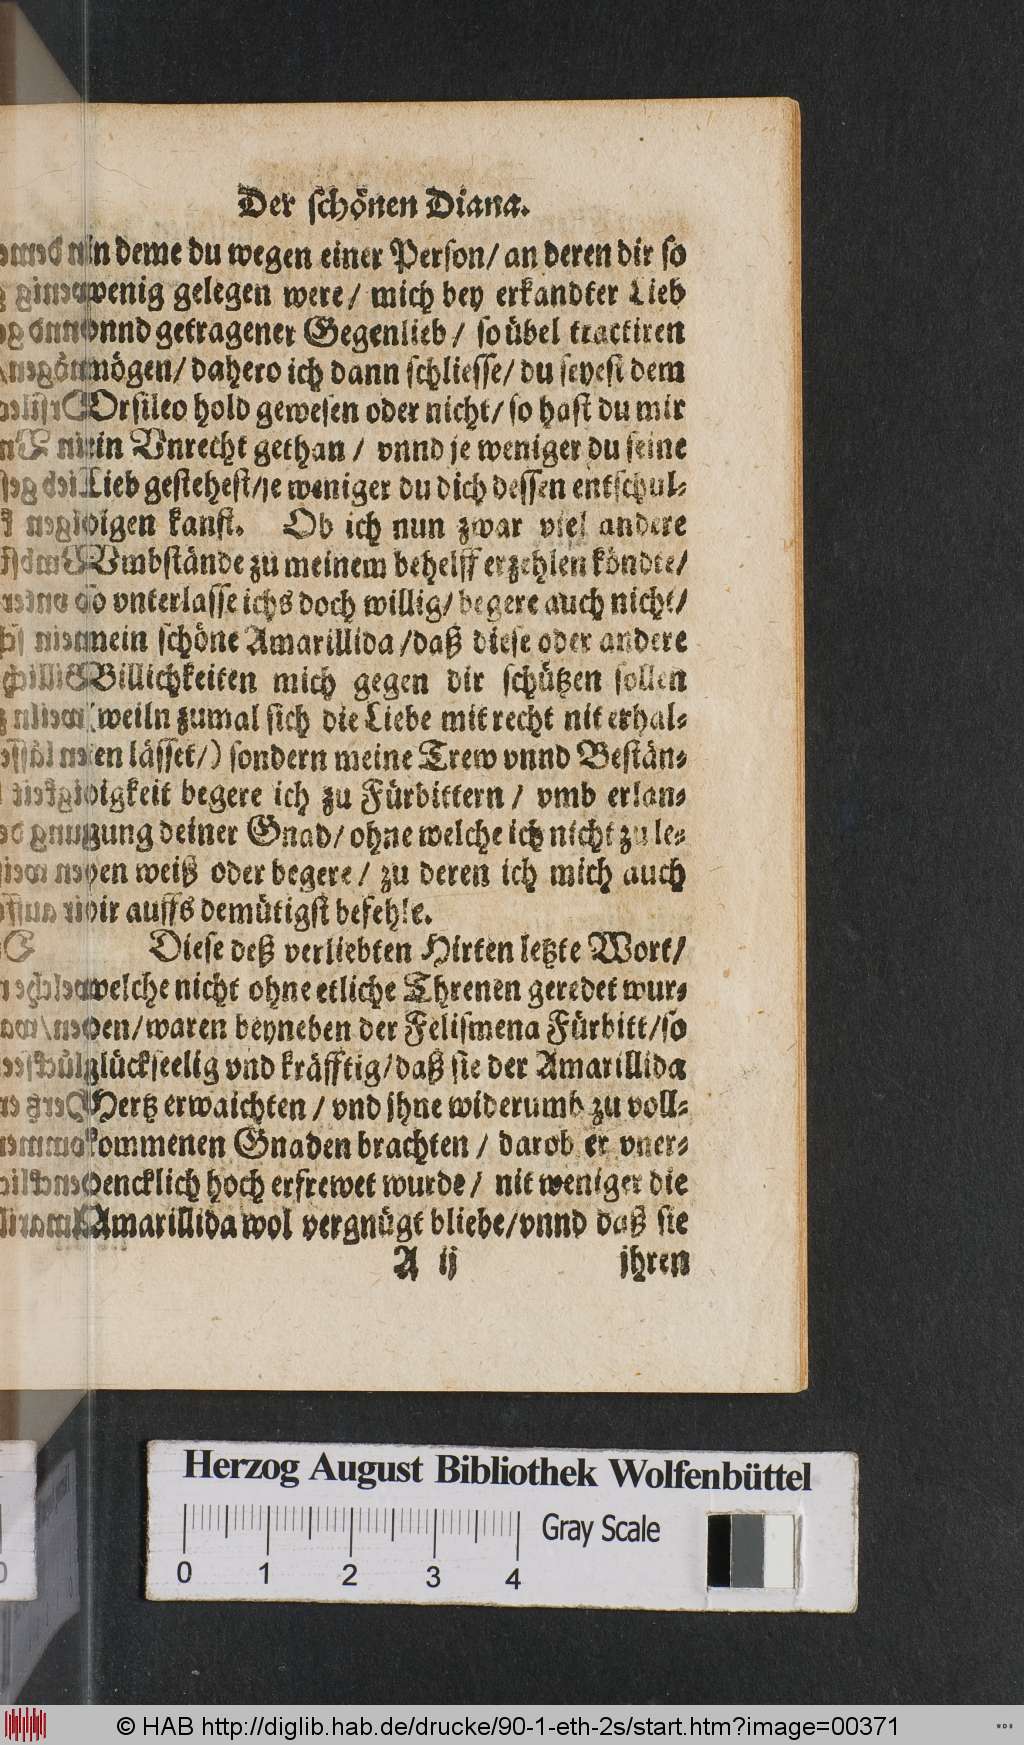 Der schönen Diana.
in deme du wegen einer Person/ an deren dir so
wenig gelegen were/ mich bey erkandter Lieb
vnnd getragener Gegenlieb/ so übel tractiren
mögen/ dahero ich dann schliesse/ du seyest dem
Orsileo hold gewesen oder nicht/ so hast du mir
ein Vnrecht gethan/ vnnd je weniger du seine
Lieb gestehest/je weniger du dich dessen entschul-
digen kanst. Ob ich nun zwar viel andere
Vmbstände zu meinem behelff erzehlen köndte/
so vnterlasse ichs doch willig/ begere auch nicht/
mein schöne Amarillida/daß diese oder andere
Billichkeiten mich gegen dir schützen sollen
(weiln zumal sich die Liebe mit recht nit erhal-
ten lässet/) sondern meine Trew vnnd Bestän-
digkeit begere ich zu Fürbittern/ vmb erlan-
gung deiner Gnad/ ohne welche ich nicht zu le-
ben weiß oder begere/ zu deren ich mich auch
dir auffs demütigst befehle.
Diese deß verliebten Hirten letzte Wort/
welche nicht ohne etliche Threnen geredet wur-
den/waren beyneben der Felismena Fürbitt/so
glückseelig vnd kräfftig/daß sie der Amarillida
Hertz erwaichten/ vnd jhne widerumb zu voll-
kommenen Gnaden brachten/ darob er vner-
dencklich hoch erfrewet wurde/ nit weniger die
Amarillida wol vergnügt bliebe/vnnd daß sie
A ij jhren
Herzog August Bibliothek Wolfenbüttel
Gray Scale
0 1 2 3 4
© HAB http://diglib.hab.de/drucke/90-1-eth-2s/start.htm?image=00371